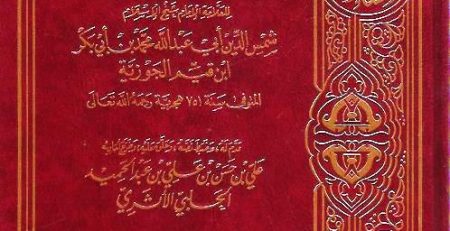 للعلامة الإمام شيخ الإسلام
شمس الدين أبي عبد الله محمد بن أبي بكر
ابن قيم الجوزية
المتوفى سنة ٧٥١ هجرية رحمه الله تعالى
قدم له، وضبط نصه، وعلق عليه، وخرج أحاديثه
علي بن حسن بن علي بن عبد الحميد
الحلبي الأثري